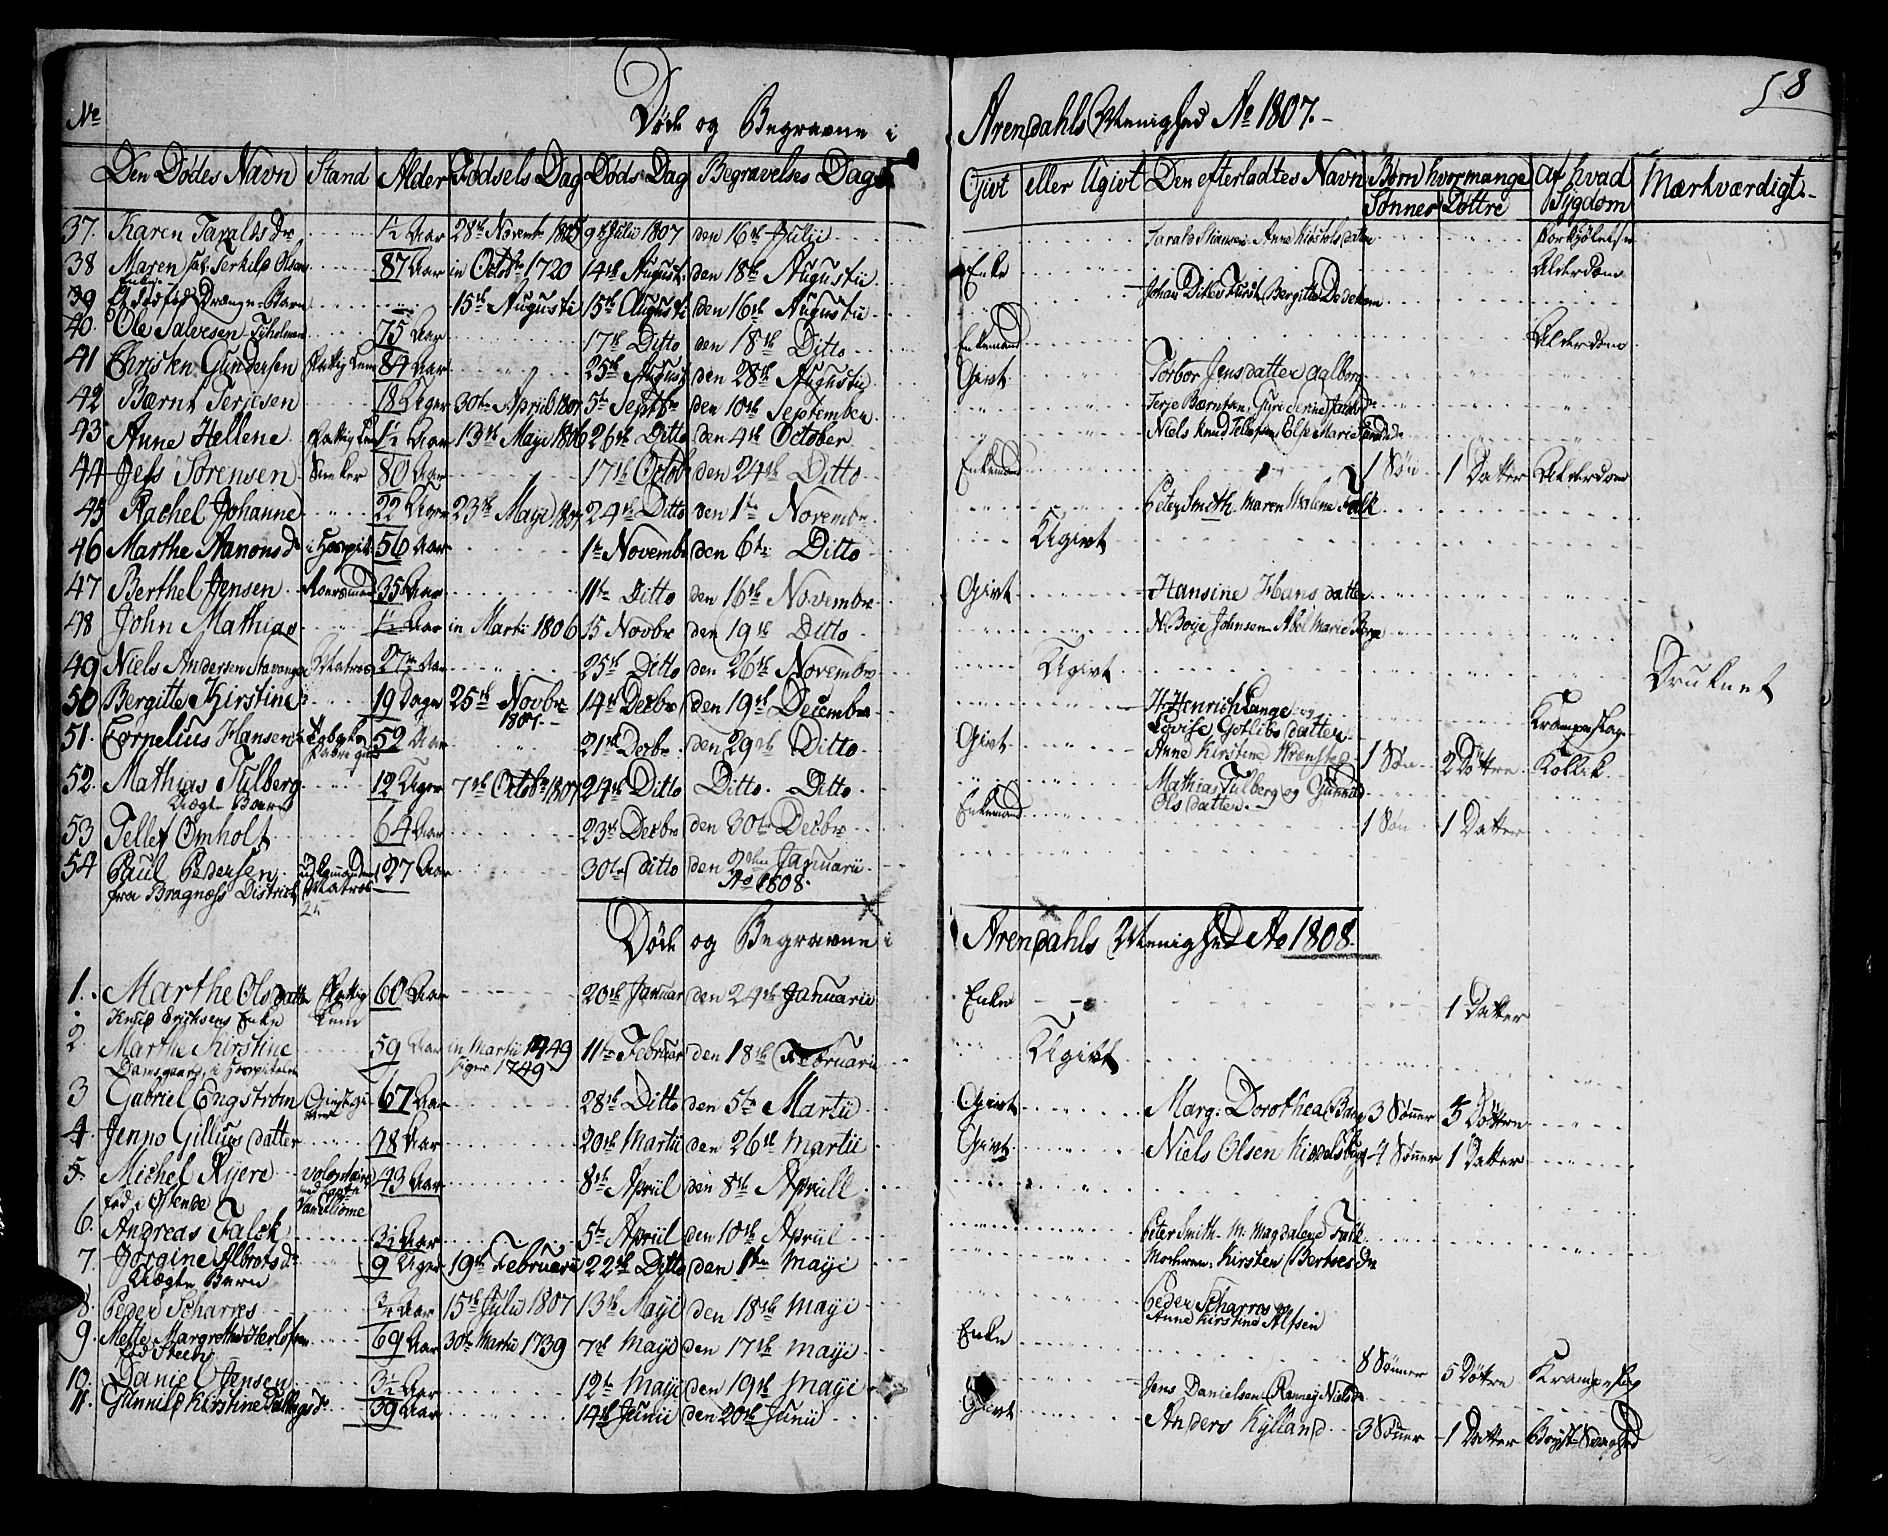 58
No Døde og Begravne i Arendahls Menighed Ao 1807.
Den Dødes Navn Stand Alder Fødsels Dag Døds Dag Begravelses Dag Givt eller Ugivt Den efterladtes Navn Børn hvormange Sønner Døttre af hvad Sygdom Mærkværdigt.
37. Karen Taralds Dr 1½ Aar 9de Julii 1807 den 16de Julii Forkjølelse
38 Maren sal. Terkild Olsens Enke 87 Aar in Octobr 1720 14de August den 18de Augustii Enke Alderdom
39 Et dødfød Drænge-Barn 15de Augusti 15de Augusti den 16de Augustii
40. Ole Salvesen Tyholmen 75 Aar 17de Ditto den 18de Ditto Enkemand Alderdom
41 Christen Gundersen Fattig Lem 84 Aar 25de August den 28de Augustii Givt Torbor Jensdatter Aalborg
42 Bærnt Terjesen 18 Uger 30te April 1807 5te Septbr den 10de September Terje Bærntsen
43 Anne Hellene 1½ Aar 13de Maji 1806 26de Ditto den 4de October Niels Knud Tellefsen
44 Jens Sörensen Snedker 80 Aar 17de Octob den 24de Ditto Enkemand 1 Søn 1 Datter Alderdom
45 Rachel Johanne 22 Uger 23de Maji 1807 24de Ditto den 1te Novembr Peter Smith Maren Malene Falk
46 Marthe Aanons Dr i Hospit. 56 Aar 1te Novembr den 6te Ditto Ugivt
47 Berthel Jensen 35 Aar 11te Ditto den 16de Novembr Givt Hansine Hans datter
48 John Mathias 1½ Aar in Martii 1806 15 Novbr den 19de Ditto N. Boije Johnsen Abel Marie
49 Niels Andersen Stavanger Matros 27 Aar 25de Ditto den 26de Novembr Ugivt Druknet
50 Bergitte Kirstine 19 Dage 25de Novbr 1807. 14de Decbr den 19de Decembr H. Henrich Lange og Lovise Gotlibs datter Krampeslag
51. Cornelius Hansen 52 Aar 21de Decbr. den 29de Ditto Givt Anne Kirstine 1 Søn 2 Døttre Kollik
52. Mathias Tulberg Uægte Barn 12 Uger 7de Octobr 1807 24de Ditto Ditto. Ditto. Mathias Tulberg og Gunnild Ols datter.
53 Tellef Omholt 64 Aar 23de Decbr den 30te Decbr Enkemand 1 Søn 1 Datter
54 Paul Pedersen fra Bragnæss District Matros 27 Aar 30te Ditto den 2den Januarii Ao 1808.
Døde og Begravne i Arendahls Menighed Ao 1808.
1. Marthe Ols datter Knud Ericksens Enke Fattig Lem 60 Aar 20de Januar den 24de Januarii Enke 1 Datter
2. Marthe Kirstine Damsgaard, i Hospitalet 59 Aar in Martii 1749 siger 1749 11te Februar den 18de Februarii Ugivt
3 Gabriel Engström 67 Aar 28de Ditto den 5te Martii Givt Marg: Dorothea 3 Sønner 5 Døttre
4. Jenno Gillius datter 78 Aar 20de Martii den 26de Martii Givt Niels Olsen 4 Sønner 1 Datter
5. Michel Ryere fød i Ostende Volontaire 43 Aar 8de April den 8de Aprill
6. Andreas Falck 3½ Aar 5te April den 10de Aprill Peter Smith M. Magdalene Falk
7. Jörgine Albrets Dr Uægte Barn 9 Uger 19de Februarii 22de Ditto den 1te Maji Moderen: Kirsten Berthes Dr
8. Peder Scharres ¾ Aar 15de Julii 1807 13de Maji den 18de Maji Peder Scharres og Anne Kirstine Alfsen
9. Mette Margrethe Herlofsen fød Steen 69 Aar 30te Martii 1739 7de Maji den 17de Maji Enke 8 Sønner 5 Døttre Krampeslag
10. Daniel Jensen 3½ Aar 12te Maji den 19de Maji Jens Danielsen Ranney Niels Dr
11. Gunnild Kirstine 39 Aar 14de Junii den 20de Junii Givt Anders Kylland 3 Sønner 1 Datter Bryst-Svaghed